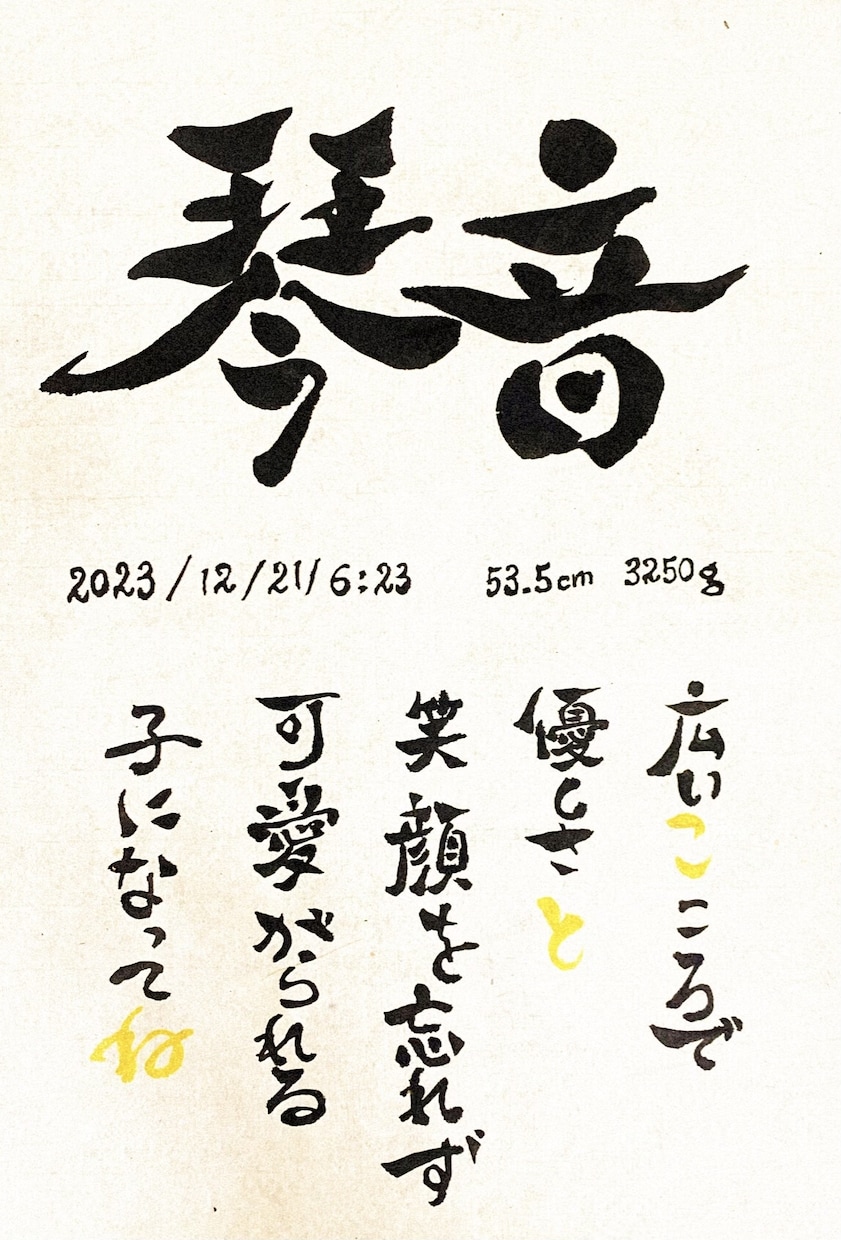 琴音
2023/12/21/6:23 53.5cm 3250g
広いこころで
優しさと
笑顔を忘れず
可愛がられる
子になってね